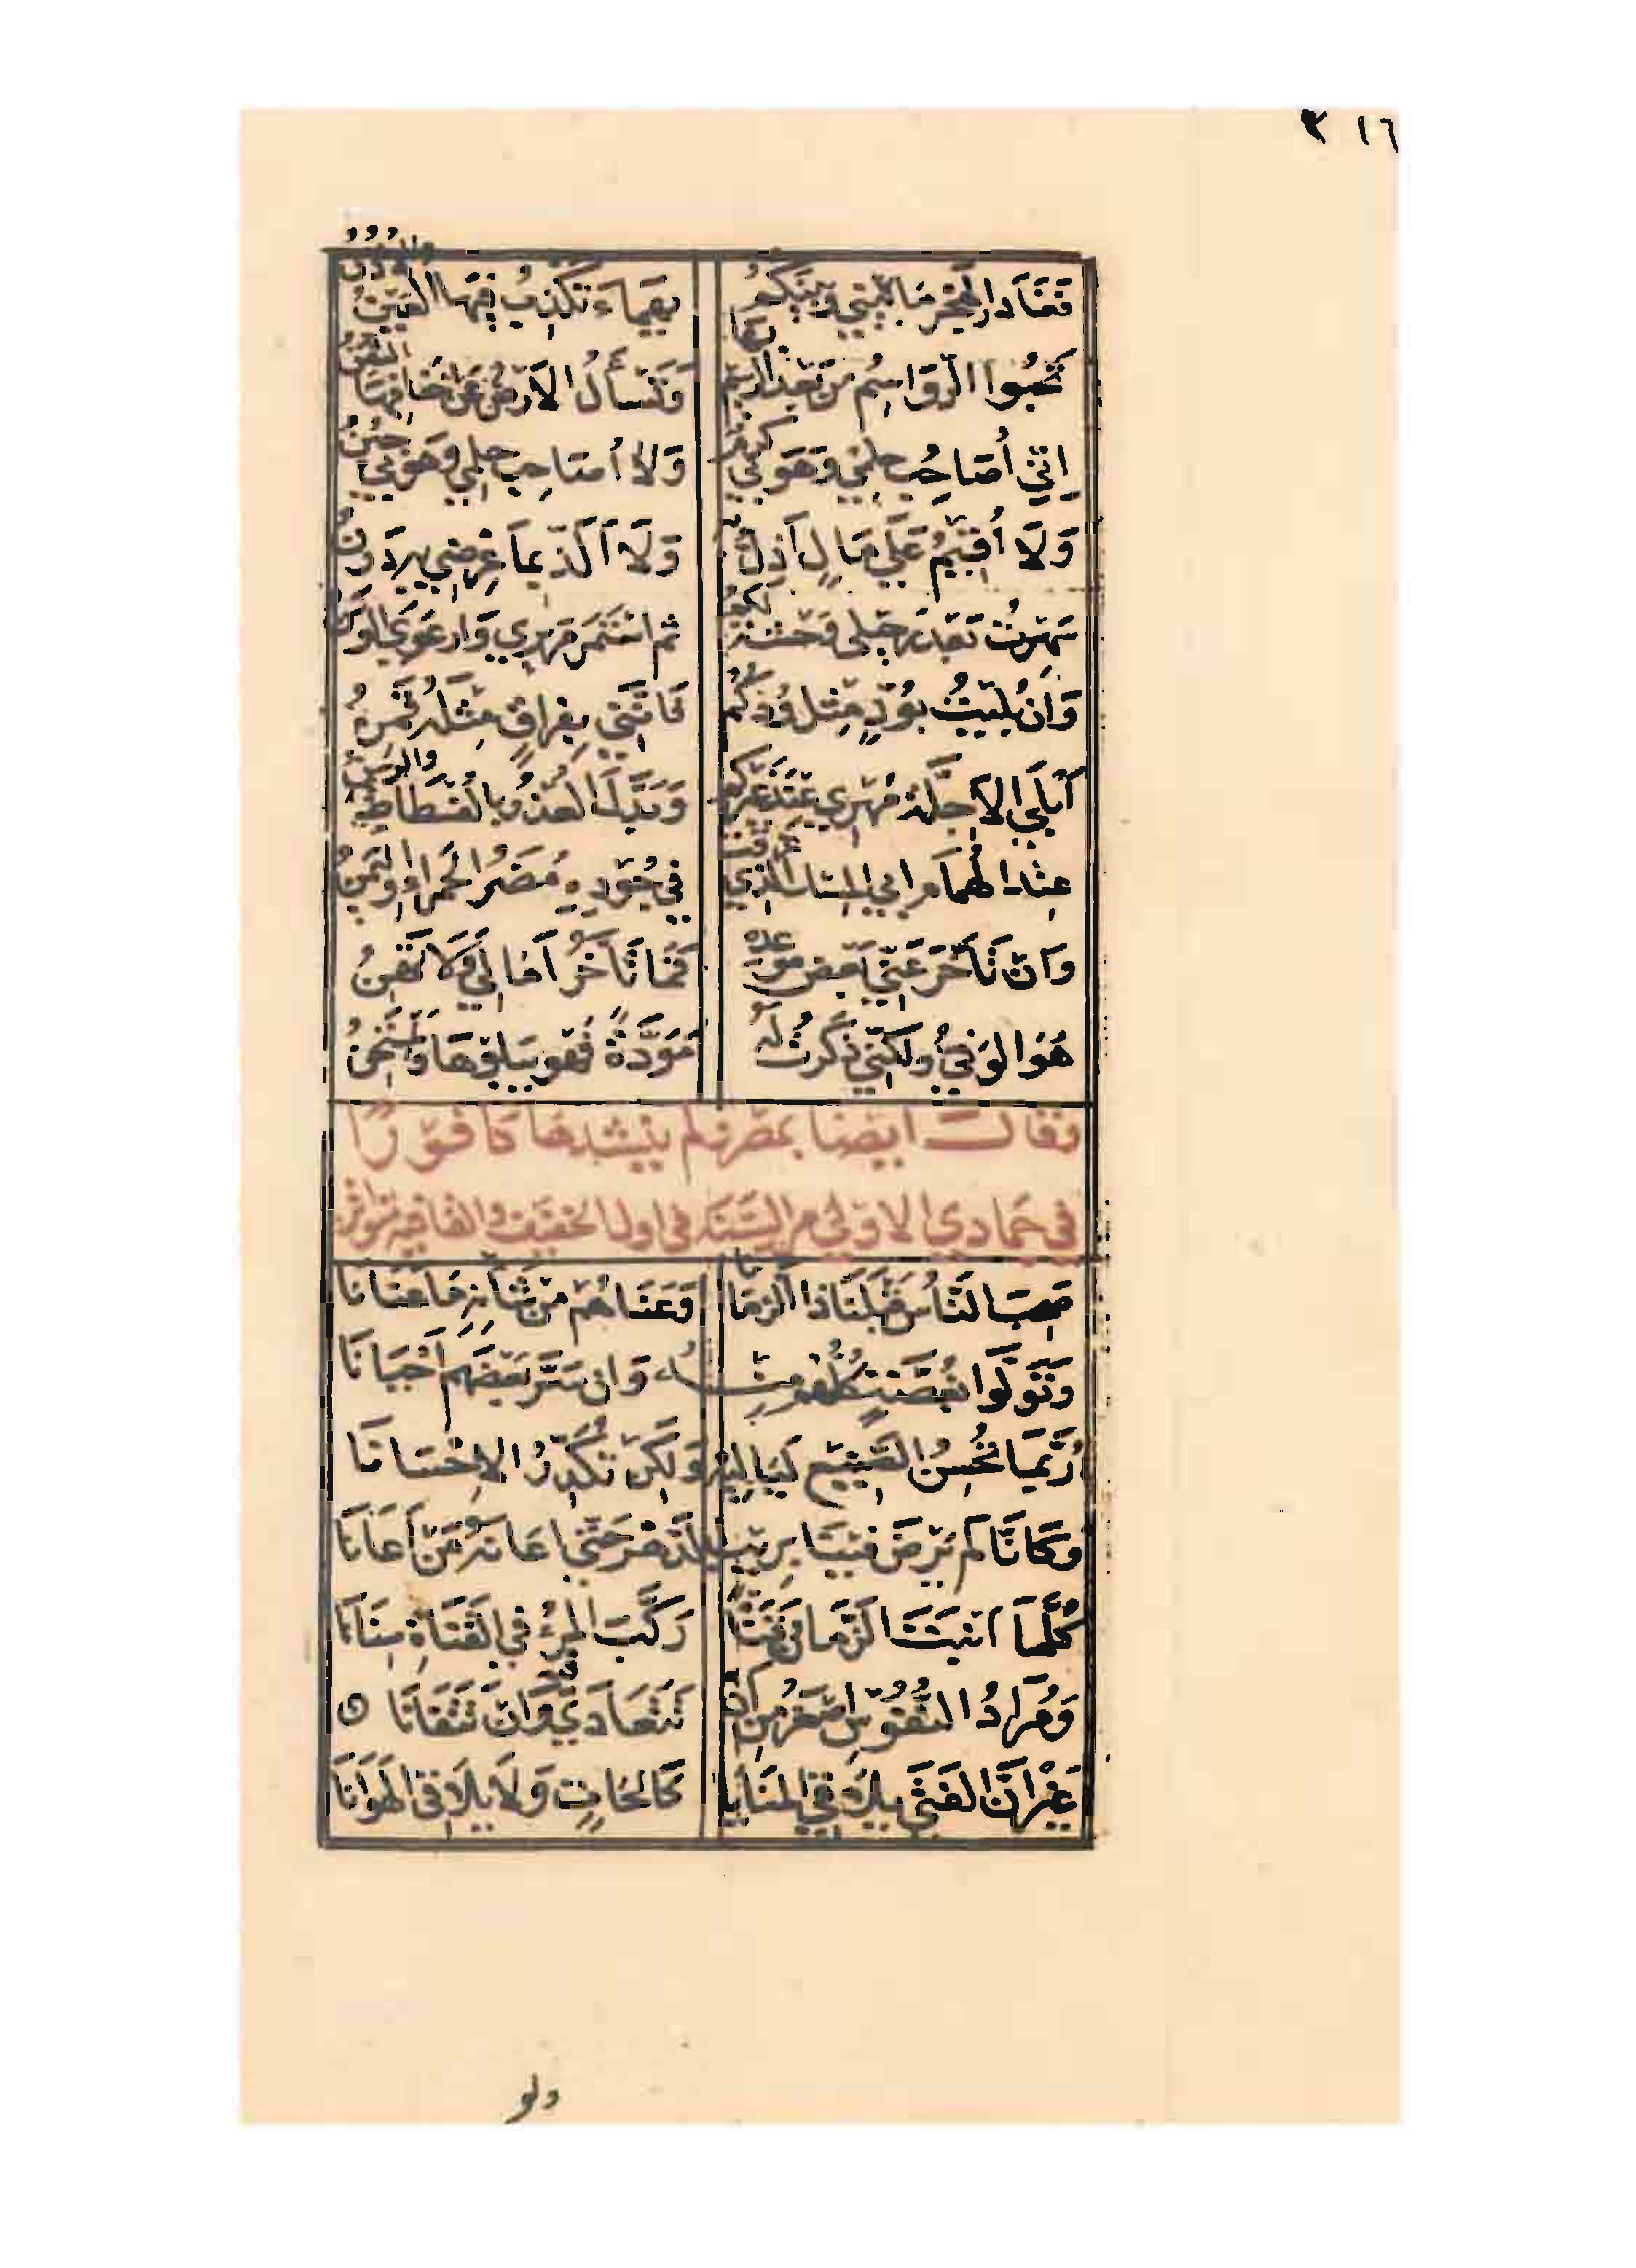 ٣١٦
فَغَادَرَ الهَجْرُ مَا بَيْنِي وَبَيْنَكُمُ يَهْمَاءَ تَكْذِبُ فِيهَا العَيْنُ وَالأُذُنُ
تَحْبُوا الرَّوَاسِمُ مِنْ بَعْدِ الرَّسِيمِ بِهَا وَتَسْأَلُ الأَرْضَ عَنْ أَخْفَافِهَا الثَّفِنُ
إِنِّي أُصَاحِبُ حِلْمِي وَهْوَ بِي كَرَمٌ وَلَا أُصَاحِبُ حِلْمِي وَهْوَ بِي جُبُنُ
وَلَا أُقِيمُ عَلَى مَالٍ أَذِلُّ بِهِ وَلَا أَلَذُّ بِمَا عِرْضِي بِهِ دَرِنُ
سَهِرْتُ بَعْدَ رَحِيلِي وَحْشَةً لَكُمُ ثم اسْتَمَرَّ مَرِيرِي وَارْعَوَى الوَسَنُ
وَإِنْ بُلِيتُ بِوُدٍّ مِثْلِ وُدِّكُمُ فَإِنَّنِي بِفِرَاقٍ مِثْلِهِ قَمِنُ
أَبْلَى الأَجِلَّةَ مُهْرِي عِنْدَ غَيْرِكُمُ وَبُدِّلَ العُذْرُ بِالفُسْطَاطِ وَالرَّسَنُ
عِنْدَ الهُمَامِ أَبِي المِسْكِ الَّذِي غَرِقَتْ فِي جُودِهِ مُضَرُ الحَمْرَاءِ وَاليَمَنُ
وَإِنْ تَأَخَّرَ عَنِّي بَعْضُ مَوْعِدِهِ فَمَا تَأَخَّرُ آمَالِي وَلَا تَهِنُ
هُوَ الوَفِيُّ وَلَكِنِّي ذَكَرْتُ لَهُ مَوَدَّةً فَهْوَ يَبْلُوهَا وَيَمْتَحِنُ
وَقَالَ أَيْضًا بِمِصْرَ وَلَمْ يُنْشِدْهَا كَافُورًا
فِي جُمَادَى الأُولَى مِنَ السَّنَةِ فِي أول الخفيف والقافية متواتر
صَحِبَ النَّاسُ قَبْلَنَا ذَا الزَّمَانَا وَعَنَاهُمْ مِنْ شَأْنِهِ مَا عَنَانَا
وَتَوَلَّوْا بِغُصَّةٍ كُلُّهُمْ مِنْـهُ وَإِنْ سَرَّ بَعْضَهُمْ أَحْيَانَا
رُبَّمَا تُحْسِنُ الصَّنِيعَ لَيَالِيهِ وَلَكِنْ تُكَدِّرُ الإِحْسَانَا
وَكَأَنَّا لَمْ يَرْضَ فِينَا بِرَيْبِ الدَّهْرِ حَتَّى أَعَانَهُ مَنْ أَعَانَا
كُلَّمَا أَنْبَتَ الزَّمَانُ قَنَاةً رَكَّبَ المَرْءُ فِي القَنَاةِ سِنَانَا
وَمُرَادُ النُّفُوسِ أَصْغَرُ مِنْ أَنْ تَتَعَادَى فِيهِ وَأَنْ تَتَفَانَا
غَيْرَ أَنَّ الفَتَى يُلَاقِي المَنَايَا كَالِحَاتٍ وَلَا يُلَاقِي الهَوَانَا
ولو